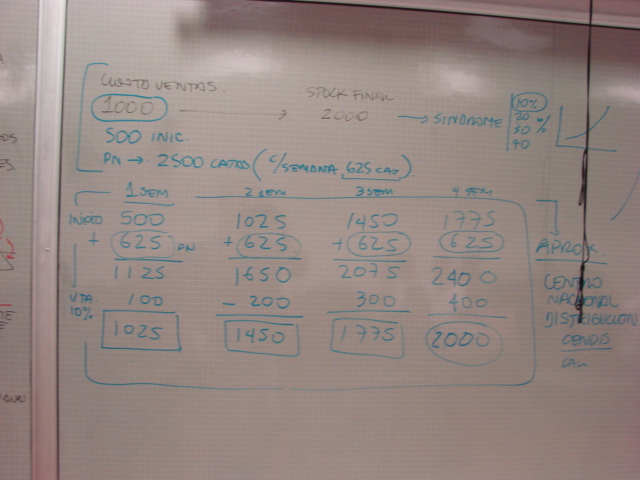 CUOTO VENTAS.
1000 → STOCK FINAL 2000 → SINDROME
10%
20
30 %
40
500 INIC.
PN → 2500 CAJAS (C/SEMANA 625 CAJ)
1 SEM 2 SEM 3 SEM 4 SEM
INICIO 500 1025 1450 1775
+ 625 PN + 625 + 625 625
1125 1650 2075 2400
VTA. 10% 100 - 200 300 400
1025 1450 1775 2000
APROX.
CENTRO
NACIONAL
DISTRIBUCION
CENDIS